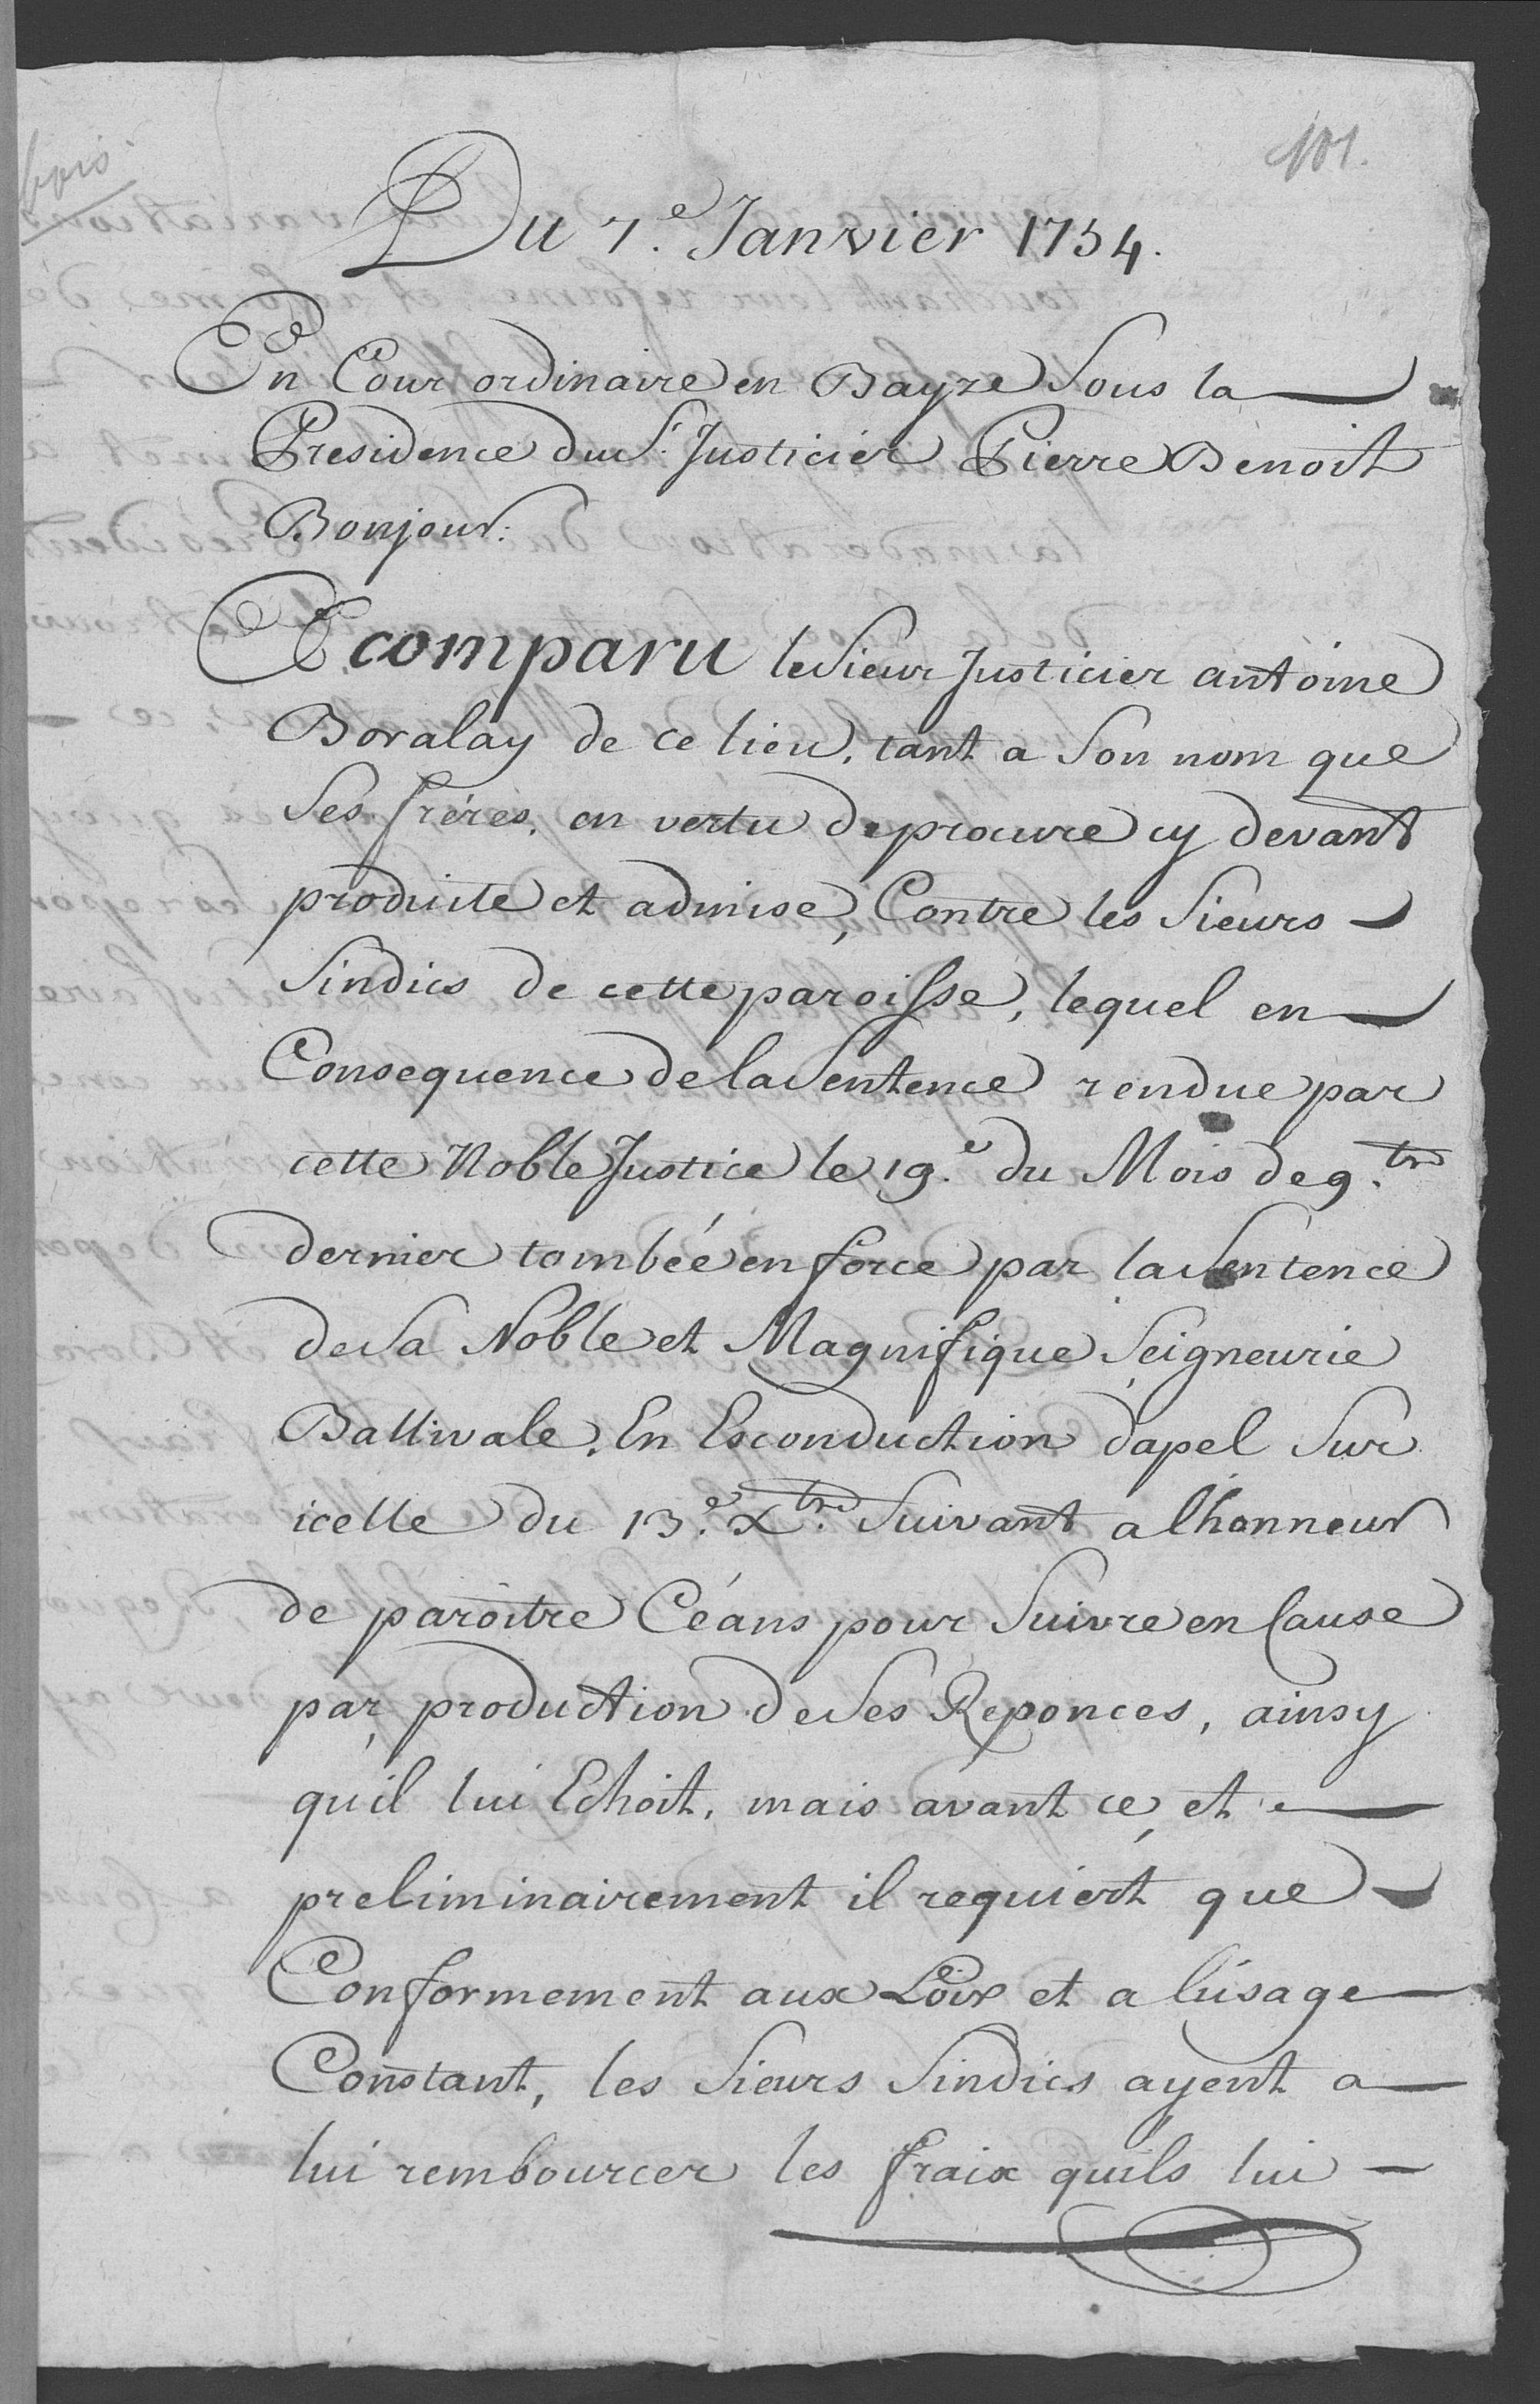 bois
101.
Du 7.e Janvier 1754.
En Cour ordinaire en Bayze Sous la
Presidence du Sr. Justicier Pierre Benoit
Bonjour.
A comparu le Sieur Justicier antoine
Boralay de ce lieu, tant a Son nom que
Ses fréres, en vertu de procure cy devant
produite et admise, Contre les Sieurs
Sindics de cette paroisse, lequel en
Consequence de la Sentence rendue par
cette Noble Justice le 19.e du Mois de 9.bre
dernier tombée en force par la Sentence
de Sa Noble et Magnifique Seigneurie
Ballivale, En Esconduction d'apel Sur
icelle du 13.e Xbre. Suivant a lhonneur
de paroitre Céans pour Suivre en Cause
par production de Ses Reponces, ainsy
qu'il lui Echoit, mais avant ce, et
preliminairement il requiert que
Conformement aux Loix et a l'usage
Constant, les Sieurs Sindics ayent a
lui rembourcer les fraix quils lui